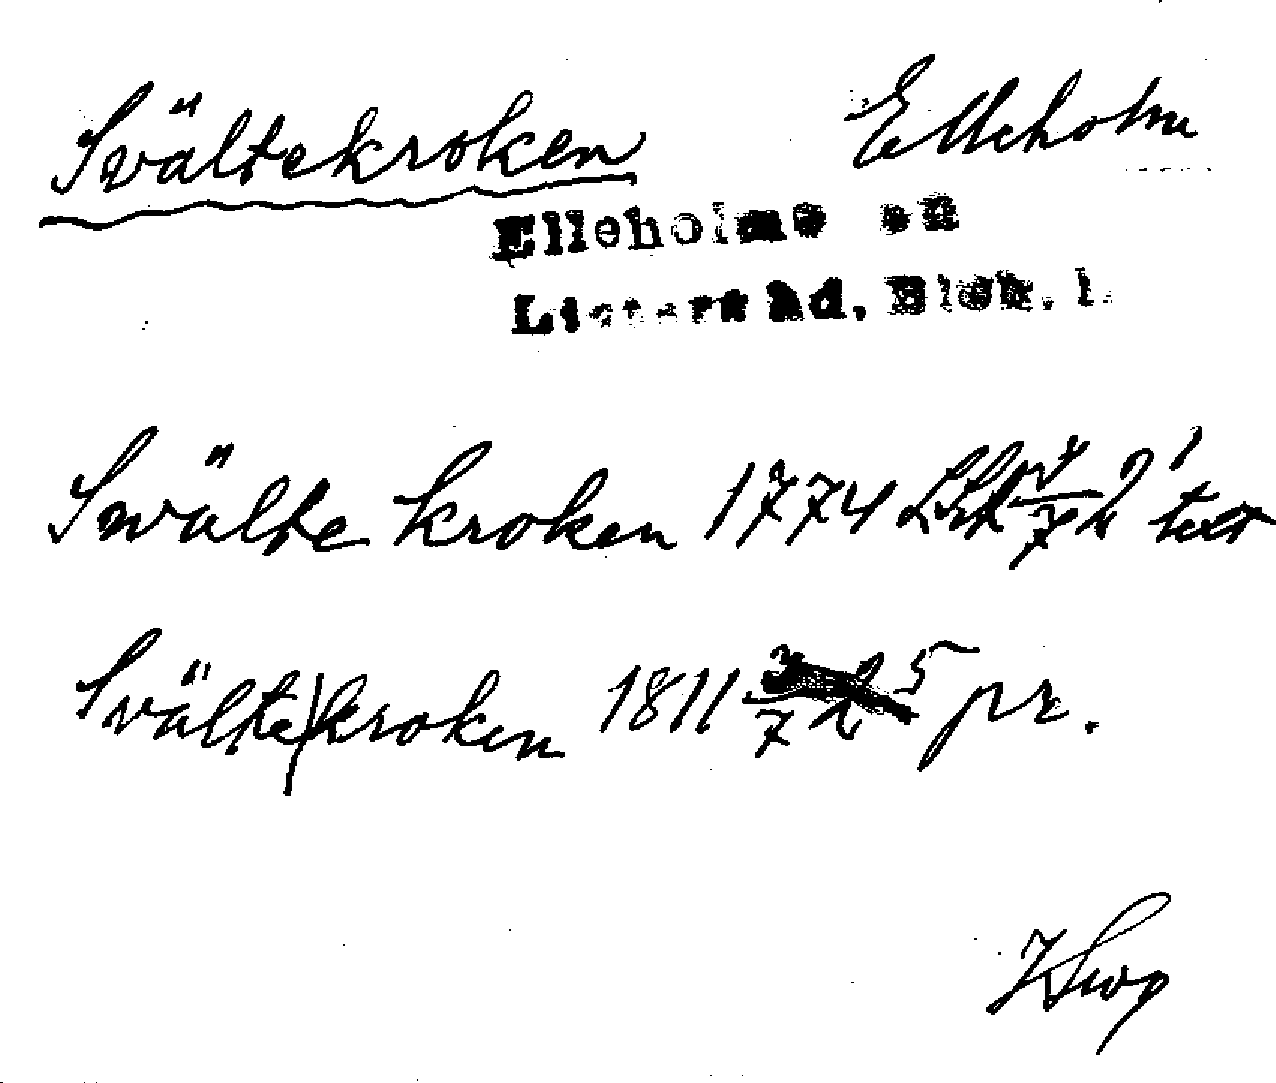 Svältekroken Elleholm
Elleholms sn
Listers hd, Blek. l.
Svälte kroken 1774 text
Svälte kroken 1811 5 pr.